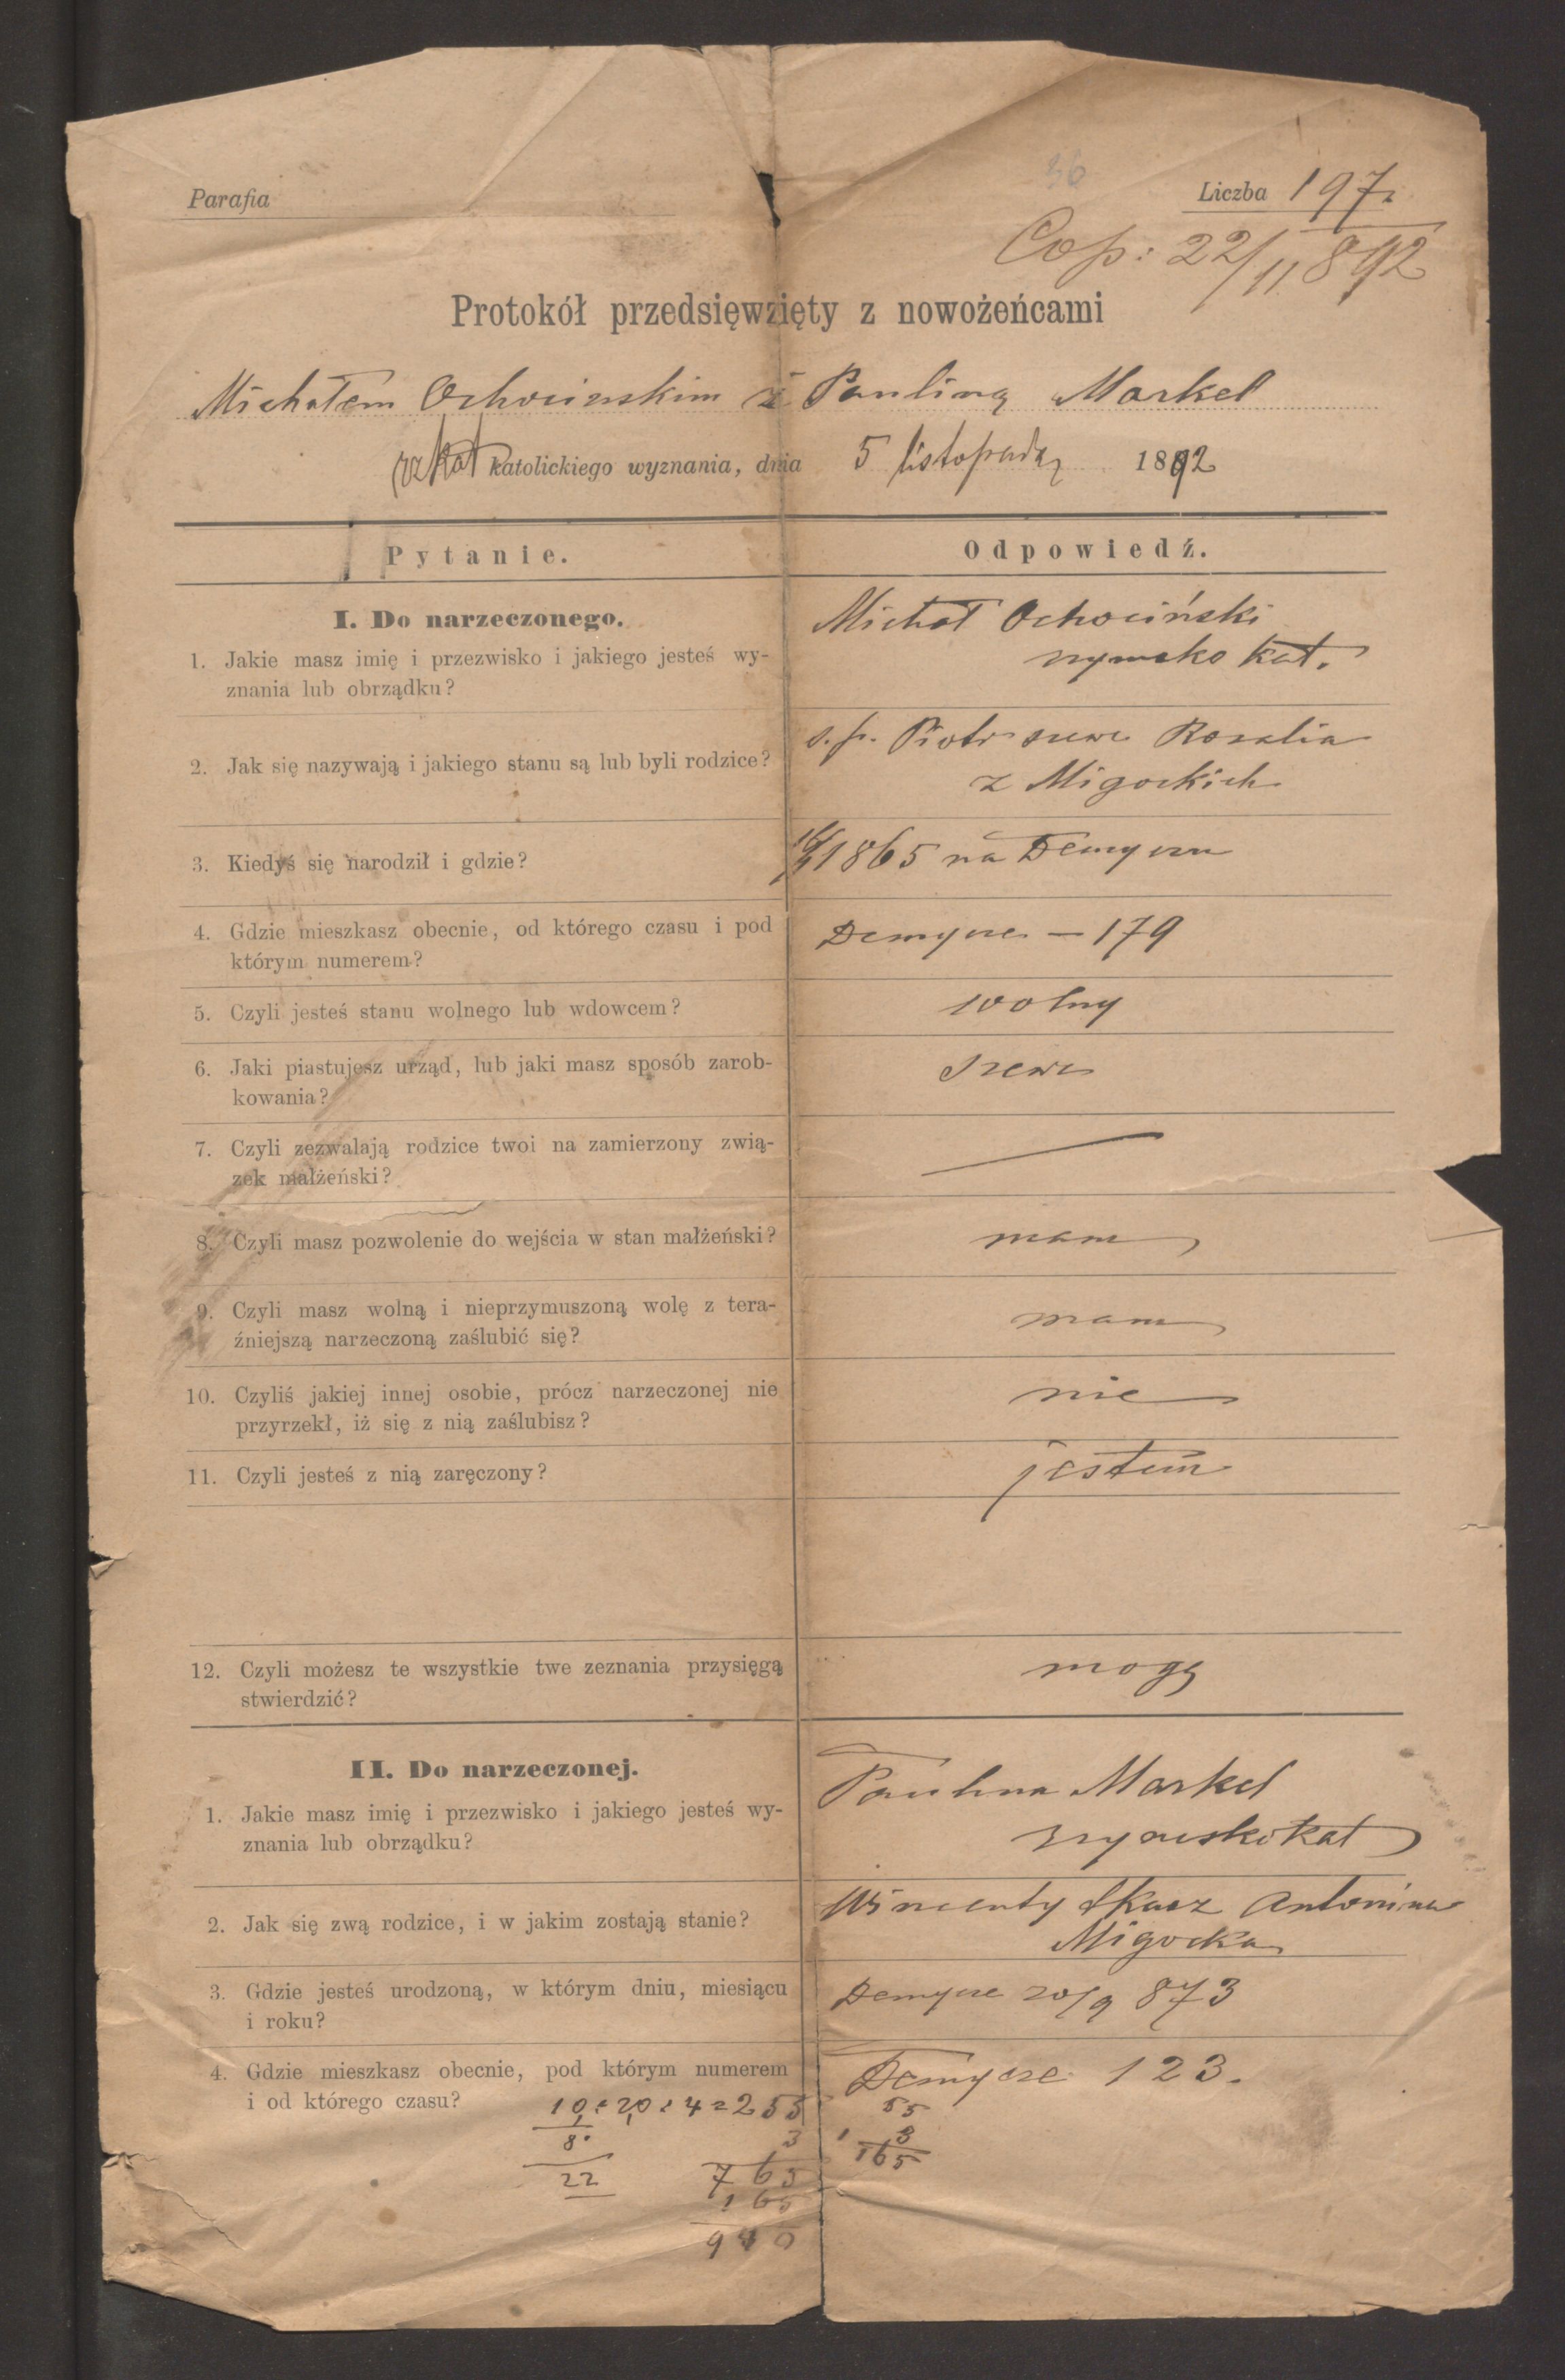 36
Parafia
Liczba 197.
Cop: 22/11 892
Protokół przedsięwzięty z nowożeńcami
Michałem Ochocinskim i Pauliną Markel
rzkat katolickiego wyznania, dnia 5 listopada 1892
Pytanie.
Odpowiedź.
I. Do narzeczonego.
1. Jakie masz imię i przezwisko i jakiego jesteś wy-
znania lub obrządku?
Michał Ochociński
rzymsko kat.
2. Jak się nazywają i jakiego stanu są lub byli rodzice?
s.p. Piotr szewc Rozalia
z Migockich
3. Kiedyś się narodził i gdzie?
1865 na Demyczu
4. Gdzie mieszkasz obecnie, od którego czasu i pod
którym numerem?
Demycze – 179
5. Czyli jesteś stanu wolnego lub wdowcem?
wolny
6. Jaki piastujesz urząd, lub jaki masz sposób zarob-
kowania?
szewc
7. Czyli zezwalają rodzice twoi na zamierzony zwią-
zek małżeński?
8. Czyli masz pozwolenie do wejścia w stan małżeński?
mam
9. Czyli masz wolną i nieprzymuszoną wolę z tera-
źniejszą narzeczoną zaślubić się?
mam
10. Czyliś jakiej innej osobie, prócz narzeczonej nie
przyrzekł, iż się z nią zaślubisz?
nie
11. Czyli jesteś z nią zaręczony?
jestem
12. Czyli możesz te wszystkie twe zeznania przysięgą
stwierdzić?
mogę
II. Do narzeczonej.
1. Jakie masz imię i przezwisko i jakiego jesteś wy-
znania lub obrządku?
Paulina Markel
rzymskokat
2. Jak się zwą rodzice, i w jakim zostają stanie?
Wincenty tkacz Antonina
Migocka
3. Gdzie jesteś urodzoną, w którym dniu, miesiącu
i roku?
Demycze 20/9 873
4. Gdzie mieszkasz obecnie, pod którym numerem
i od którego czasu?
Demycze 123.
10 : 20 : 4 = 255
8.
3
22
765
165
55
3
165